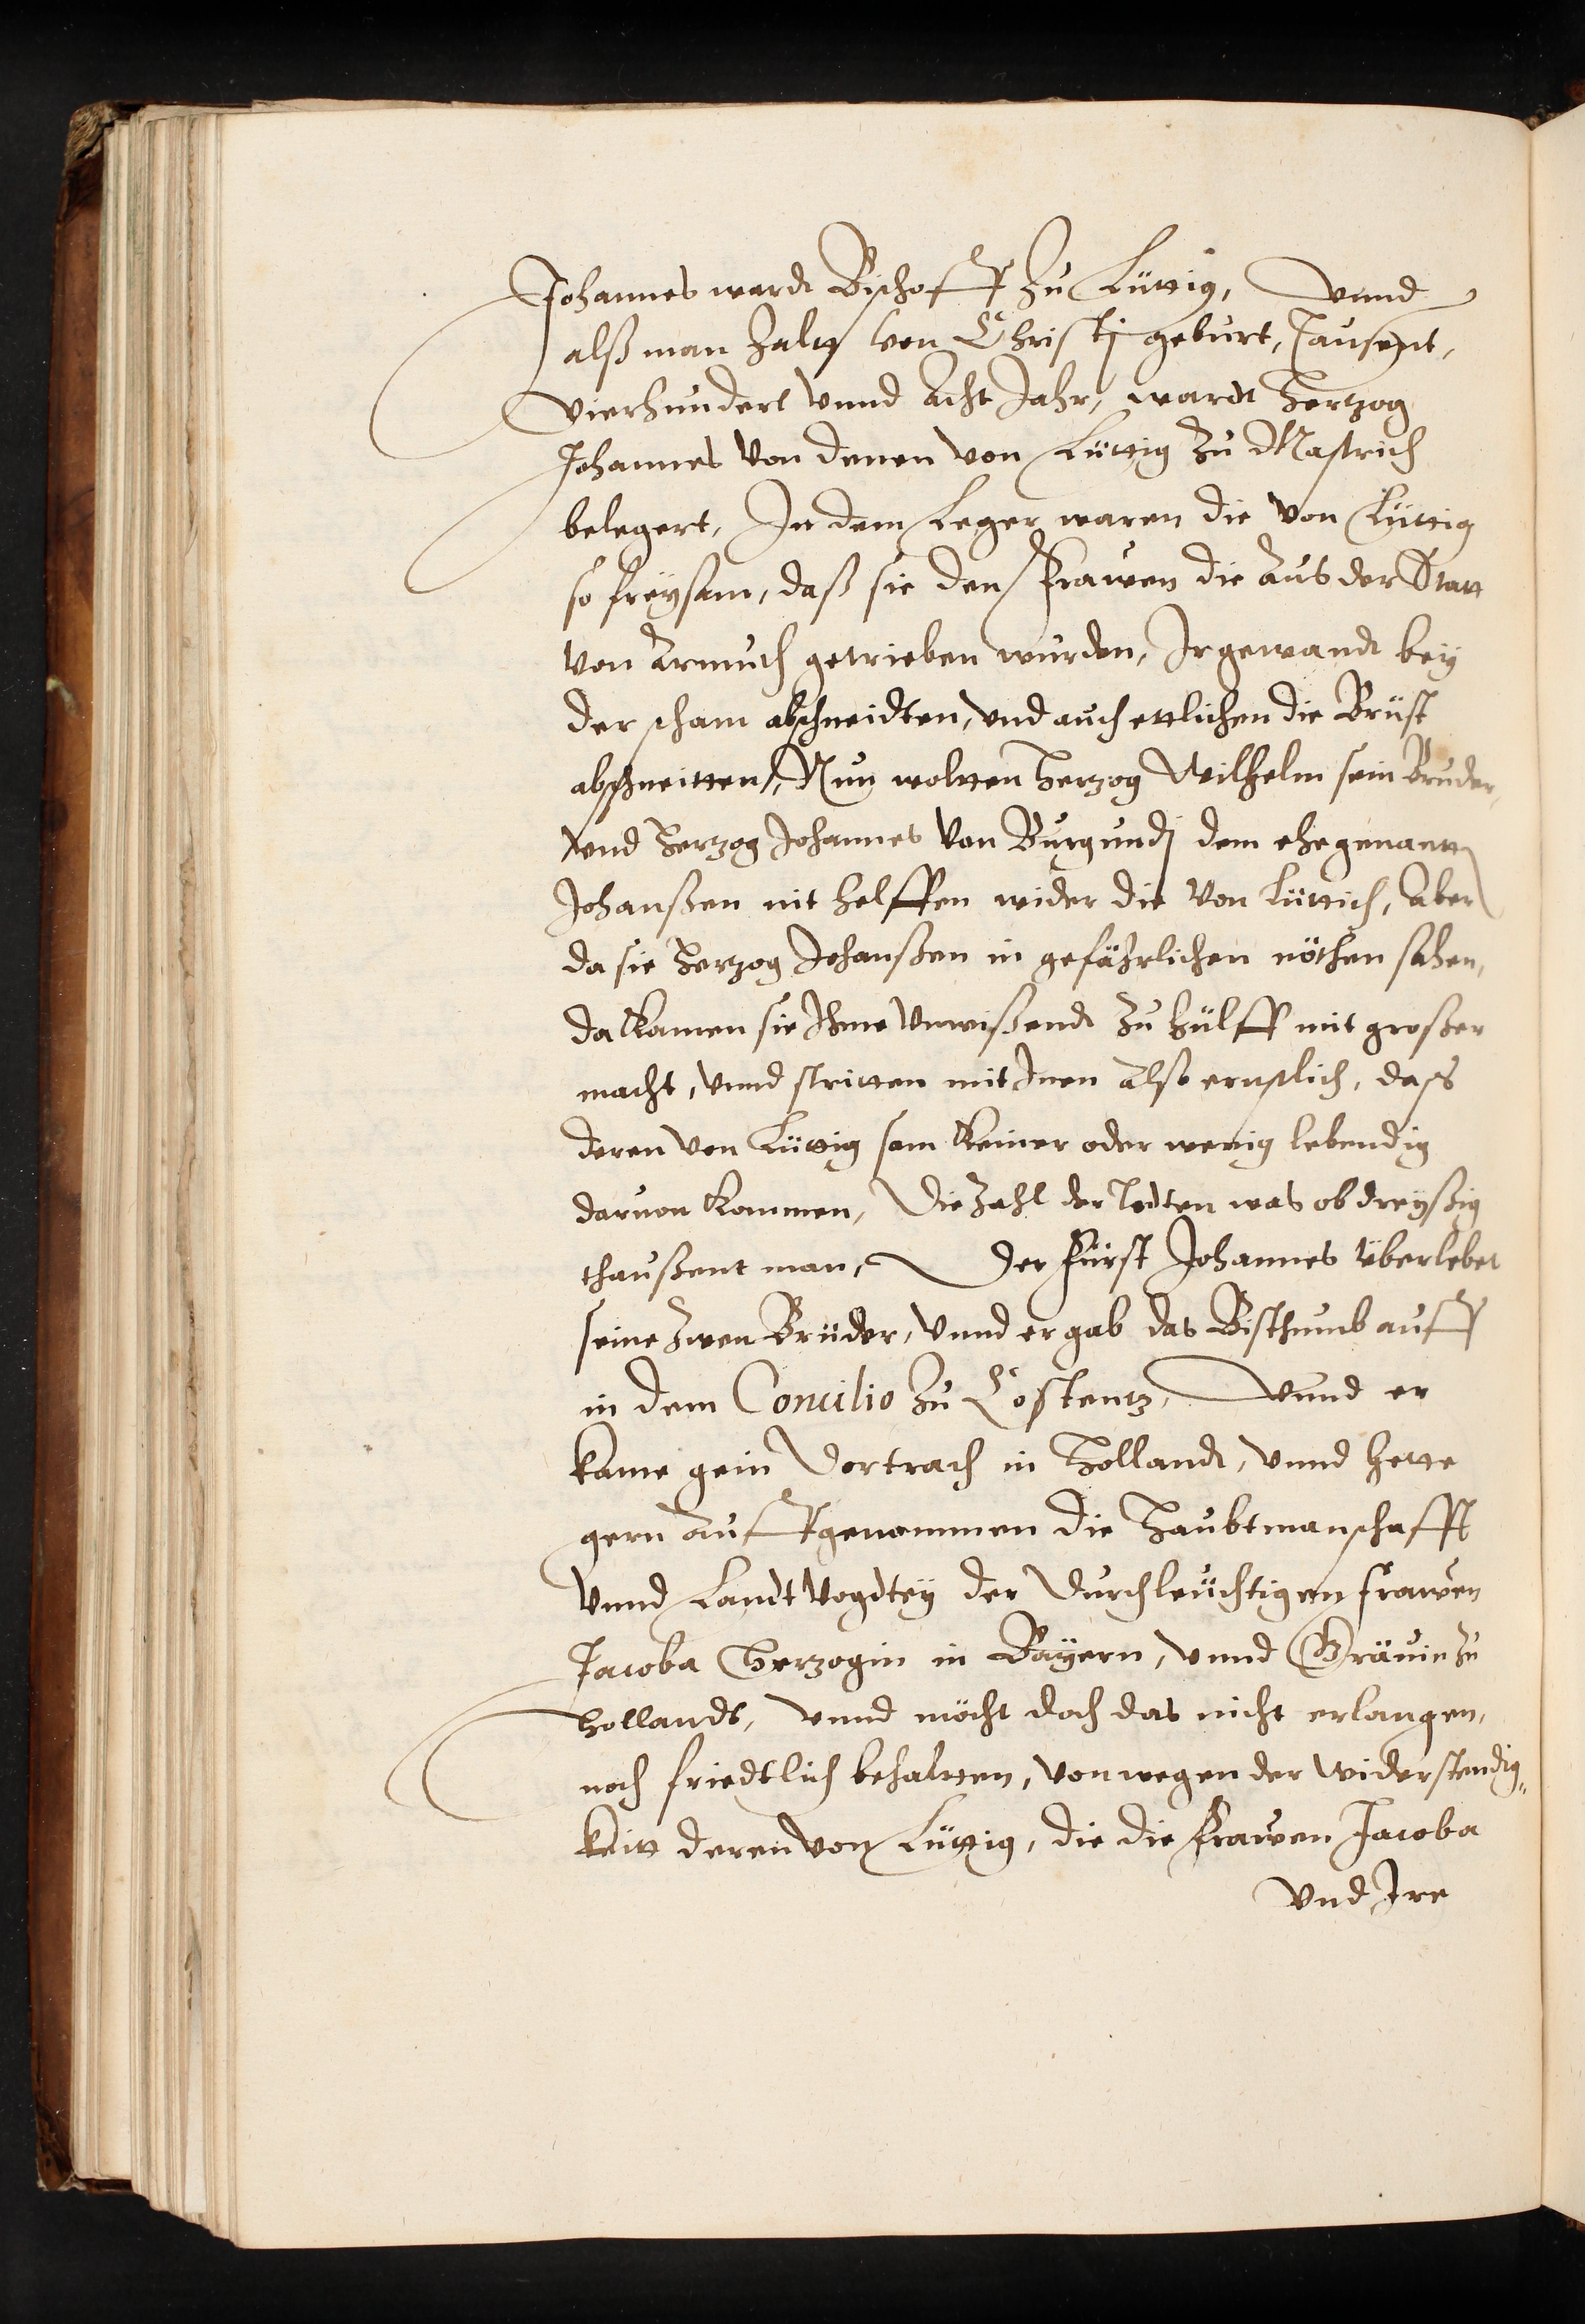 Johannes wardt Bischoff zu Lüttig, Vnnd
alß man zaltt von Christj geburt, Tausent,
Vierhundert vnnd Acht Jahr, wardt Hertzog
Johannes von denen von Lüttig zu Mastrich
belegert, In dem Leger waren die von Lüttig
so freysam, daß sie den Frawen die Aus der Statt
von Armuth getrieben wurden, Ir gewandt bey
der scham abschneidten, vnd auch ettlichen die Brüst
abschneitten, Nun woltten Herzog Wilhelm sein Bruder,
vnd Herzog Johannes von Burgundj dem ehegenantten
Johanßen nit helffen wider die von Lüttich, Aber
da sie Herzog Johanßen in gefährlichen nöthen sahen,
da kamen sie Ihme vnwißendt zu hülff mit großer
macht, vnnd stritten mit Inen Also ernstlich, dass
deren von Lüttig sam keiner oder wenig lebendig
daruon kommen, Die Zahl der Todten was ob dreyßig
thaußent man, Der Fürst Johannes überlebet
seine zwen Brüder, vnnd er gab das Bisthumb auff
in dem Concilio zu Costentz, Vnnd er
kame gein Dortrach in Hollandt, vnnd hette
gern Auffgenommen die Haubtmanschafft
vnnd Landtvogdtey der Durchleuchtigen frawen
Jacoba Herzogin in Bayern, vnnd Grävin zu
Hollandt, vnnd möcht doch das nicht erlangen,
noch friedtlich behaltten, von wegen der widerstendig„
keitt deren von Lüttig, die die Frawen Jacoba
Vnd Ire